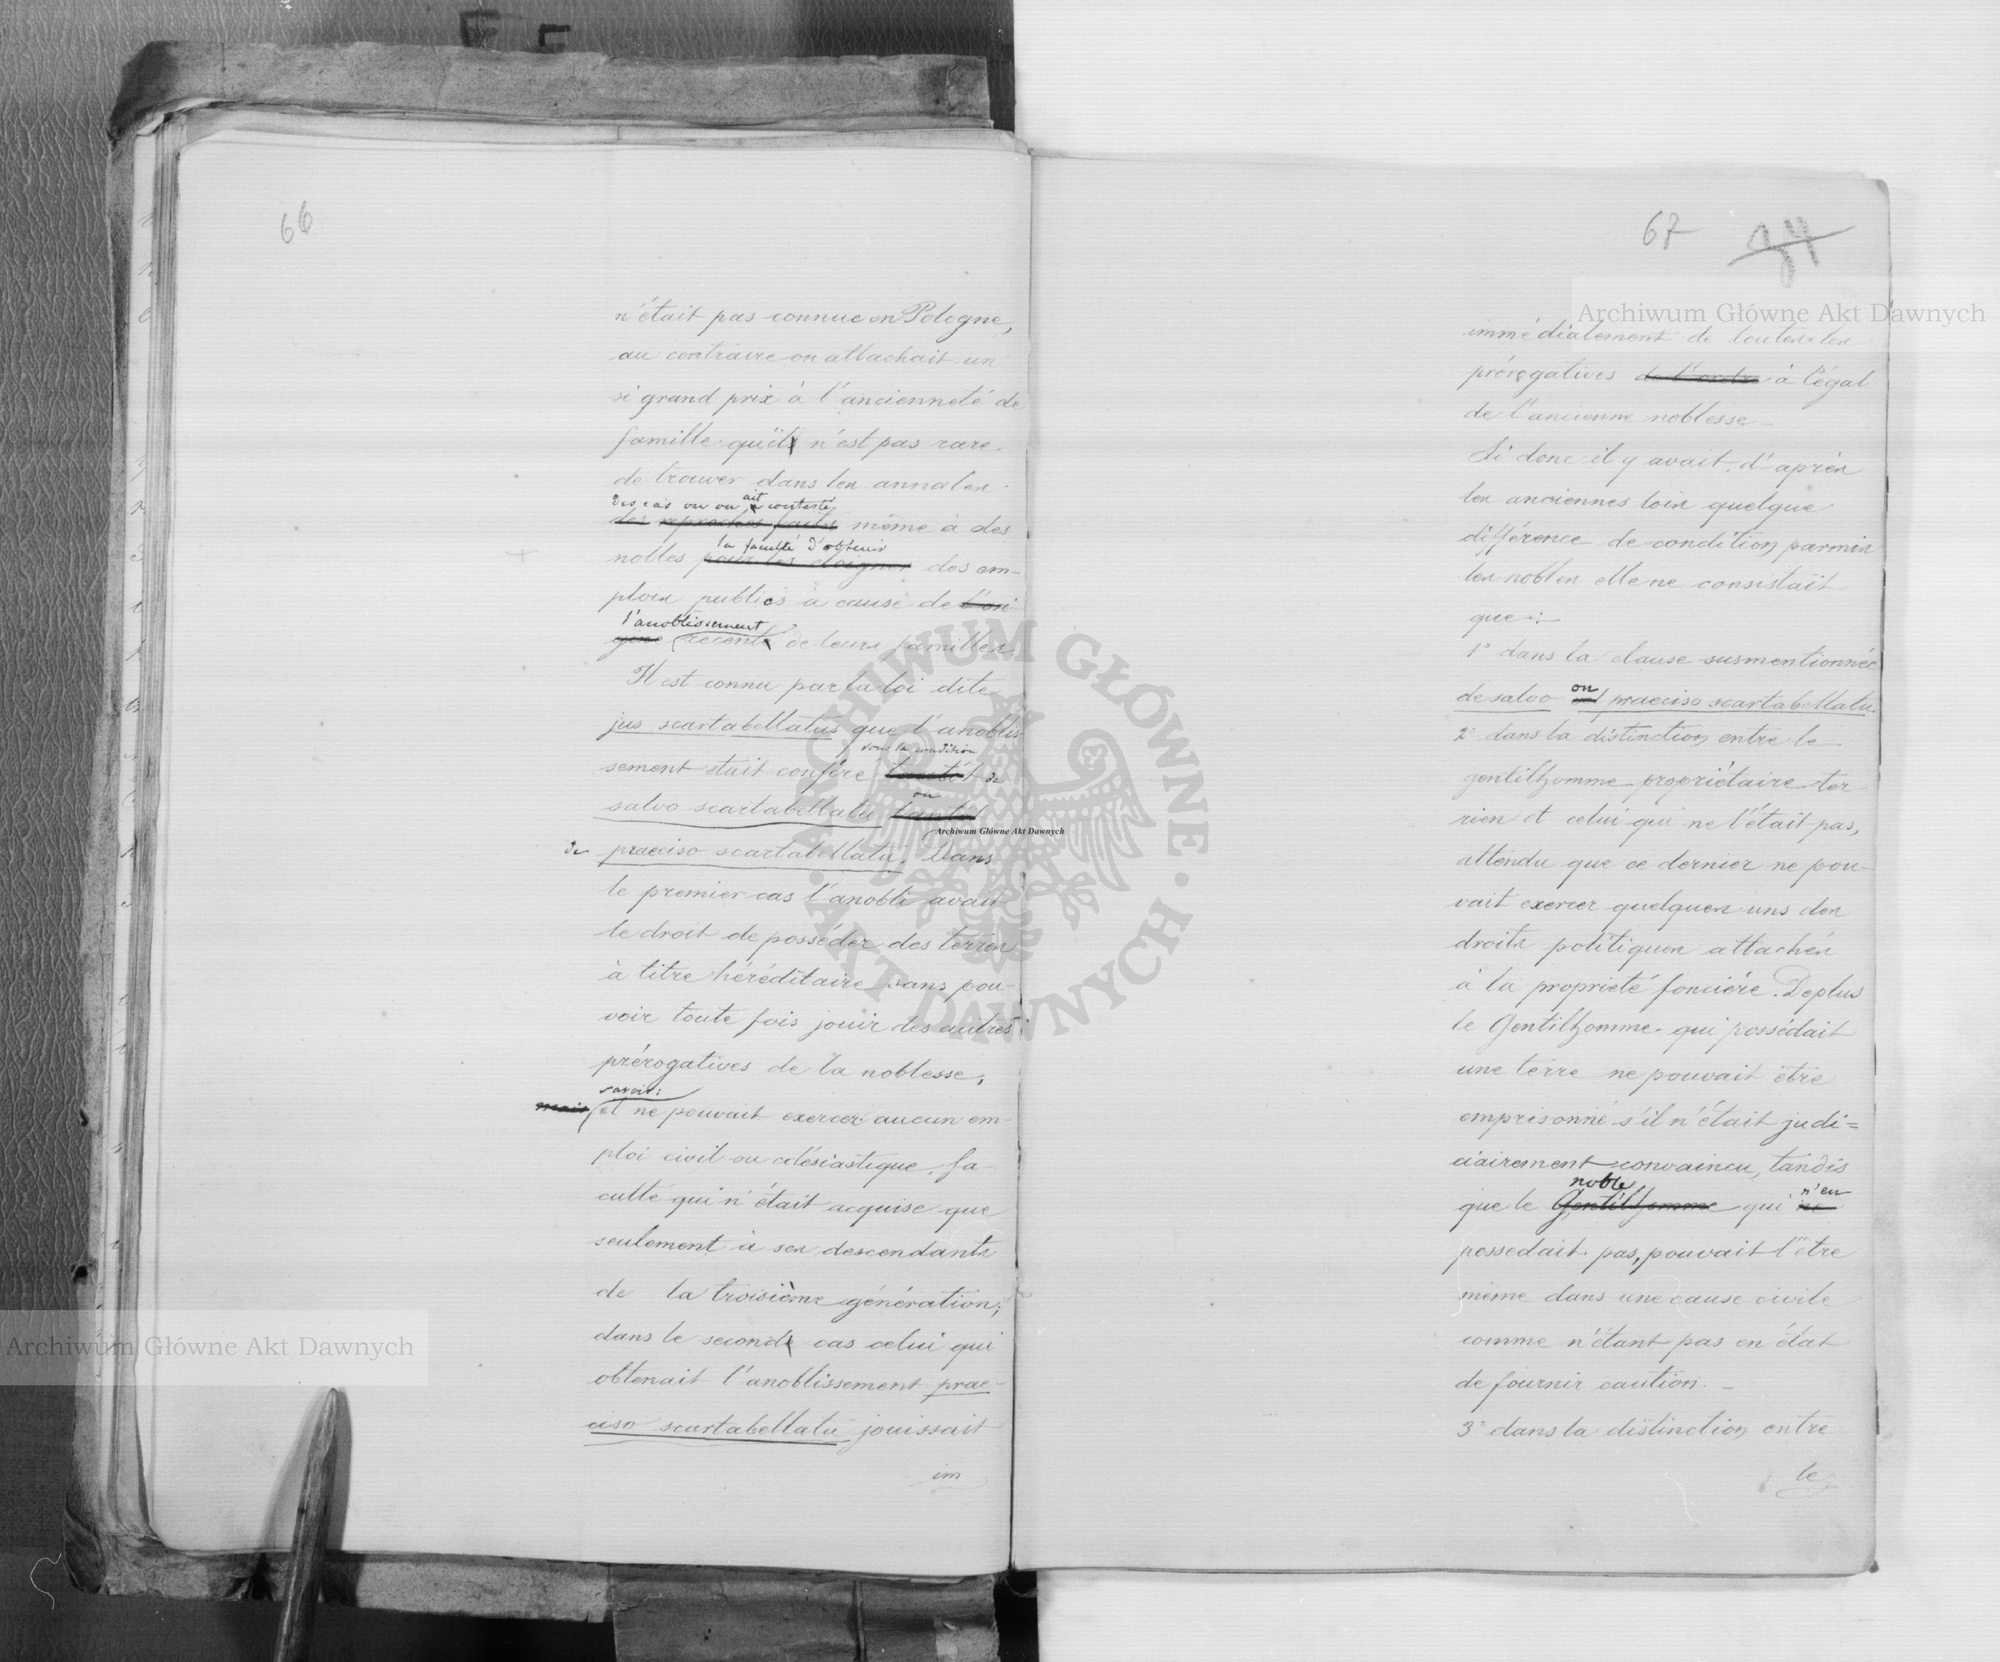 66
n'était pas connue en Pologne,
au contraire on attachait un
si grand prix à l'ancienneté de
famille qu'il n'est pas rare
de trouver dans les annales
des cas ou on ait contesté
des reproches faits même à des
la faculté d'obtenir
nobles pour les éloigner des em-
plois publics à cause de l'ori-
l'anoblissement
gine récent de leurs familles.
Il est connu par la loi dite
jus scartabellatus que l'anoblis-
sous la condition
sement était conféré tantôt de
ou
salvo scartabellatu tantôt
de praeciso scartabellatu. Dans
le premier cas l'anobli avait
le droit de posséder des terres
à titre héréditaire sans pou-
voir toute fois jouir des autres
prérogatives de la noblesse,
savoir:
mais et ne pouvait exercer aucun em-
ploi civil ou clésiastique, fa-
culté qui n'était acquise que
seulement à ses descendants
de la troisième génération;
dans le second cas celui qui
obtenait l'anoblissement prae-
ciso scartabellatu jouissait
im
67 74
immédiatement de toutes les
prérogatives de l'ordre à l'égal
de l'ancienne noblesse
Si donc il y avait d'après
les anciennes lois quelque
différence de condition parmis
les nobles elle ne consistait
que:
1° dans la clause susmentionnée
ou
de salvo praeciso scartabellatu.
2° dans la distinction entre le
gentilhomme propriétaire ter-
rien et celui qui ne l'était pas,
attendu que ce dernier ne pou-
vait exercer quelques uns des
droits politiques attachés
à la propriété foncière. De plus
le Gentilhomme qui possédait
une terre ne pouvait être
emprisonné s'il n'était judi=
ciairement convaincu, tandis
noble n'en
que le Gentilhomme qui ne
possedait pas, pouvait l'être
même dans une cause civile
comme n'étant pas en état
de fournir caution. -
3° dans la distinction entre
le
Archiwum Główne Akt Dawnych
Archiwum Główne Akt Dawnych
Archiwum Główne Akt Dawnych
ARCHIWUM GŁÓWNE · AKT DAWNYCH ·